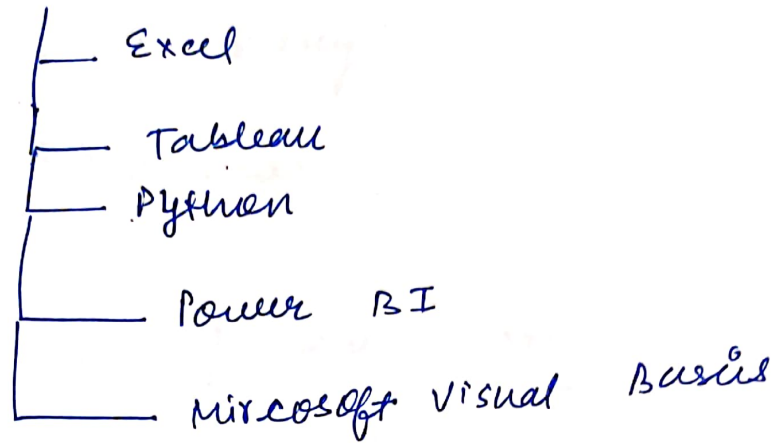 Excel
Tableau
Python
Power BI
Mircosoft Visual Basis